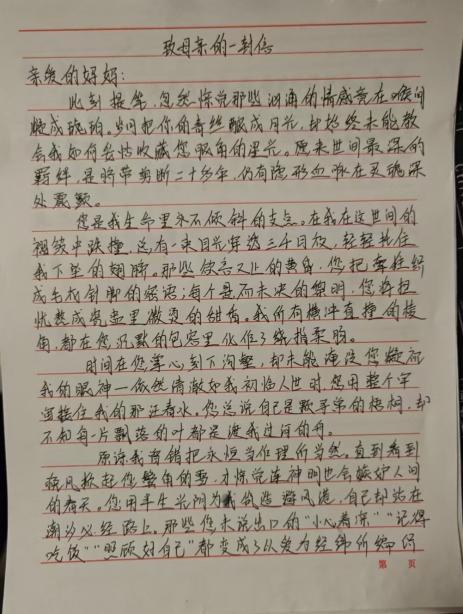 致母亲的一封信
亲爱的妈妈：
此刻提笔，忽然惊觉那些汹涌的情感竟在喉间
凝成琥珀。岁月把你的青丝酿成月光，却始终未能教
会我如何妥帖收藏您眼角的星光。原来世间最深的
羁绊，是脐带剪断二十多年，仍有隐形血脉在灵魂深
处震颤。
您是我生命里永不倾斜的支点。在我在这世间的
褶皱中跌撞，总有一束目光穿透三千日夜，轻轻托住
我下坠的翅膀。那些欲言又止的黄昏，您把牵挂织
成毛衣针脚的絮语；每个悬而未决的黎明，您将担
忧熬成瓷盅里微烫的甜香。我所有横冲直撞的棱
角，都在您沉默的包容里化作了绕指柔肠。
时间在您掌心刻下沟壑，却未能淹没您凝望
我的眼神—依然清澈如我初临人世时，您用整个宇
宙接住我的那汪春水。您总说自己是最寻常的梧桐，却
不知每一片飘落的叶都是渡我过河的舟。
原谅我曾错把永恒当作理所当然。直到看到
晚风掀起您鬓角的雪，才惊觉连神明也会嫉妒人间
的春天。您用半生光阴为我铸造避风港，自己却站在
潮汐必经路上。那些您未说出口的“小心着凉”“记得
吃饭”“照顾好自己”都变成了以爱为经纬所编织
第 页